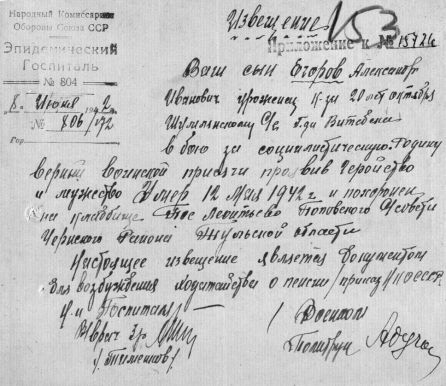 Извещение
153
Народный Комиссариат
Обороны Союза ССР
Эпидемический
Госпиталь
№ 804
8. Июня 1942 г.
№ 806/172
Гор.
Приложение к № 15424
Ваш сын Егоров Александр
Иванович уроженец к-за 20 лет октября
Шумлянского С/с Витебской
в бою за социалистическую Родину
верный воинской присяги проявив геройство
и мужество Умер 12 Мая 1942 г и похоронен
на кладбище Пос Леонтьево Поповского С/совета
Чернского Района Тульской области
Настоящее извещение является документом
для возбуждения ходатайства о пенсии /приказ НКО СССР
Госпиталя
/ Военком
Политрук
В/врач 3р